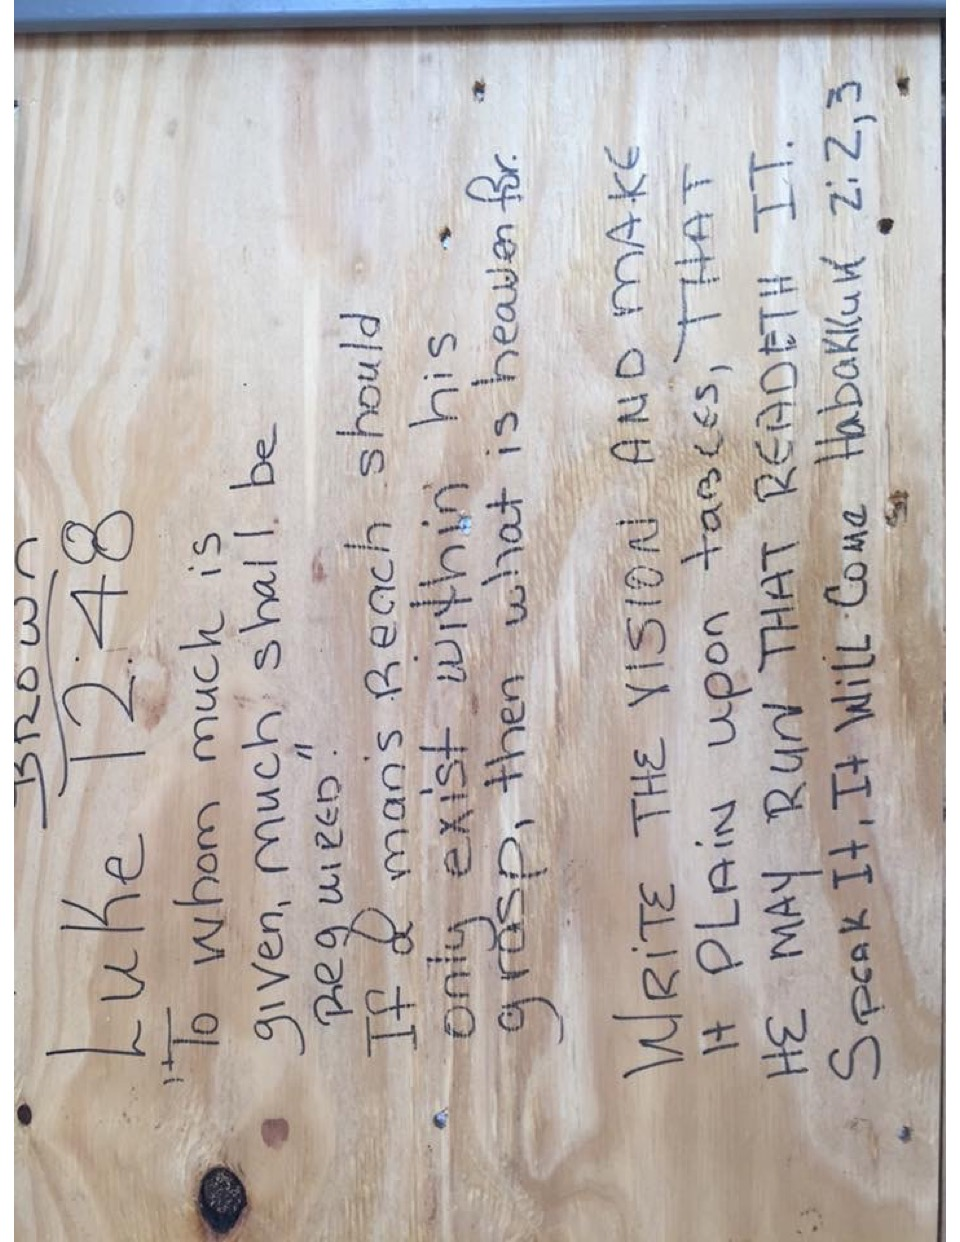 Brown
Luke 12:48
"To whom much is
given, much shall be
Required."
If a mans Reach should
only exist within his
grasp, then what is heaven for.
WRITE THE VISION AND MAKE
it PLAIN upon tables, THAT
HE MAY RUN THAT READETH IT.
Speak It, It Will Come Habakkuk 2:2,3